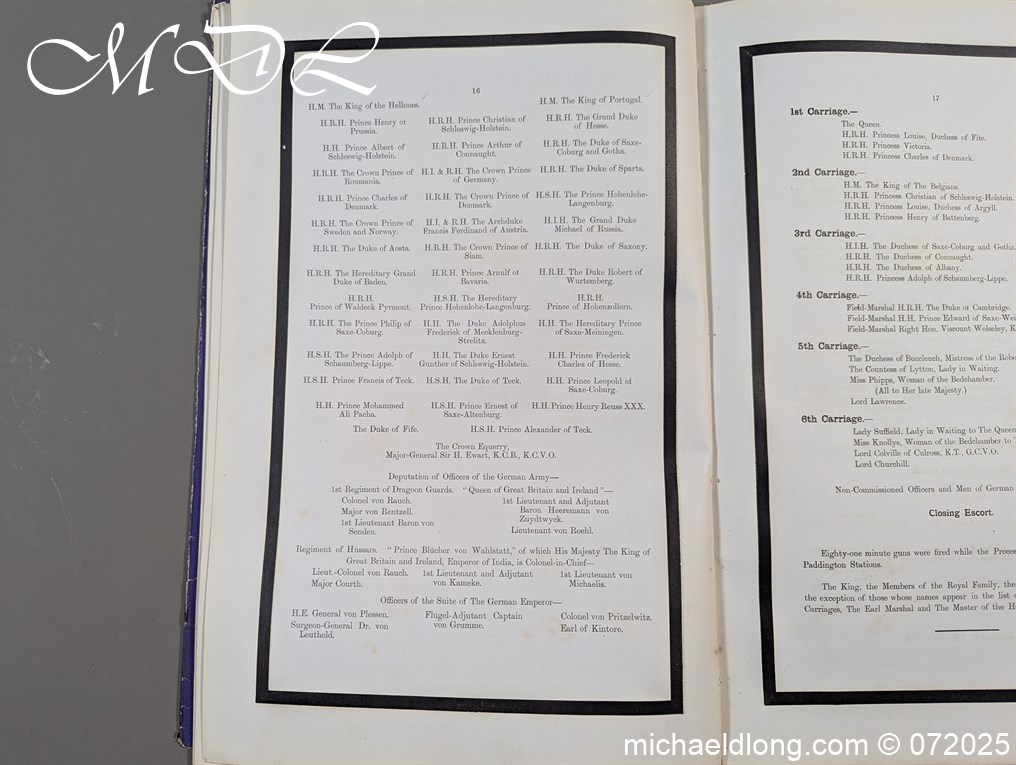 MDL
16
H.M. The King of the Hellenes. H.M. The King of Portugal.
H.R.H. Prince Henry of Prussia. H.R.H. Prince Christian of Schleswig-Holstein. H.R.H. The Grand Duke of Hesse.
H.H. Prince Albert of Schleswig-Holstein. H.R.H. Prince Arthur of Connaught. H.R.H. The Duke of Saxe-Coburg and Gotha.
H.R.H. The Crown Prince of Roumania. H.I. & R.H. The Crown Prince of Germany. H.R.H. The Duke of Sparta.
H.R.H. Prince Charles of Denmark. H.R.H. The Crown Prince of Denmark. H.S.H. The Prince Hohenlohe-Langenburg.
H.R.H. The Crown Prince of Sweden and Norway. H.I. & R.H. The Archduke Francis Ferdinand of Austria. H.I.H. The Grand Duke Michael of Russia.
H.R.H. The Duke of Aosta. H.R.H. The Crown Prince of Siam. H.R.H. The Duke of Saxony.
H.R.H. The Hereditary Grand Duke of Baden. H.R.H. Prince Arnulf of Bavaria. H.R.H. The Duke Robert of Wurtemberg.
H.R.H. Prince of Waldeck Pyrmont. H.S.H. The Hereditary Prince Hohenlohe-Langenburg. H.R.H. Prince of Hohenzollern.
H.R.H. The Prince Philip of Saxe-Coburg. H.H. The Duke Adolphus Frederick of Mecklenburg-Strelitz. H.H. The Hereditary Prince of Saxe-Meiningen.
H.S.H. The Prince Adolph of Schaumberg-Lippe. H.H. The Duke Ernest Gunther of Schleswig-Holstein. H.H. Prince Frederick Charles of Hesse.
H.S.H. Prince Francis of Teck. H.S.H. The Duke of Teck. H.H. Prince Leopold of Saxe-Coburg.
H.H. Prince Mohammed Ali Pacha. H.S.H. Prince Ernest of Saxe-Altenburg. H.H. Prince Henry Reuss XXX.
The Duke of Fife. H.S.H. Prince Alexander of Teck.
The Crown Equerry,
Major-General Sir H. Ewart, K.C.B., K.C.V.O.
Deputation of Officers of the German Army—
1st Regiment of Dragoon Guards. "Queen of Great Britain and Ireland"—
Colonel von Rauch. 1st Lieutenant and Adjutant Baron Heeremann von Zuydtwyck.
Major von Rentzell.
1st Lieutenant Baron von Senden. Lieutenant von Roehl.
Regiment of Hussars. "Prince Blücher von Wahlstatt," of which His Majesty The King of
Great Britain and Ireland, Emperor of India, is Colonel-in-Chief—
Lieut.-Colonel von Rauch. 1st Lieutenant and Adjutant von Kameke. 1st Lieutenant von Michaelis.
Major Courth.
Officers of the Suite of The German Emperor—
H.E. General von Plessen. Flugel-Adjutant Captain von Grumme. Colonel von Pritzelwitz.
Surgeon-General Dr. von Leuthold. Earl of Kintore.
17
1st Carriage.—
The Queen.
H.R.H. Princess Louise, Duchess of Fife.
H.R.H. Princess Victoria.
H.R.H. Princess Charles of Denmark.
2nd Carriage.—
H.M. The King of The Belgians.
H.R.H. Princess Christian of Schleswig-Holstein.
H.R.H. Princess Louise, Duchess of Argyll.
H.R.H. Princess Henry of Battenberg.
3rd Carriage.—
H.I.H. The Duchess of Saxe-Coburg and Gotha.
H.R.H. The Duchess of Connaught.
H.R.H. The Duchess of Albany.
H.R.H. Princess Adolph of Schaumberg-Lippe.
4th Carriage.—
Field-Marshal H.R.H. The Duke of Cambridge.
Field-Marshal H.H. Prince Edward of Saxe-Wei
Field-Marshal Right Hon. Viscount Wolseley, K
5th Carriage.—
The Duchess of Buccleuch, Mistress of the Robe
The Countess of Lytton, Lady in Waiting.
Miss Phipps, Woman of the Bedchamber.
(All to Her late Majesty.)
Lord Lawrence.
6th Carriage.—
Lady Suffield, Lady in Waiting to The Queen
Miss Knollys, Woman of the Bedchamber to T
Lord Colville of Culross, K.T., G.C.V.O.
Lord Churchill.
Non-Commissioned Officers and Men of German
Closing Escort.
Eighty-one minute guns were fired while the Proce
Paddington Stations.
The King, the Members of the Royal Family, the
the exception of those whose names appear in the list o
Carriages, The Earl Marshal and The Master of the H
michaeldlong.com © 072025